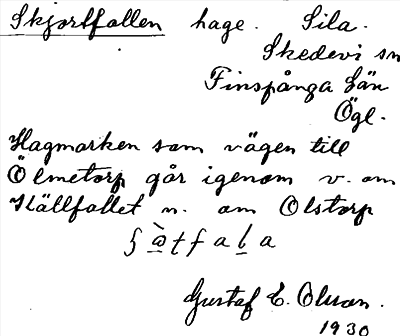 Skjortfallen hage. Sila.
Skedevi sn
Finspånga län
Ögl.
Hagmarken som vägen till
Ölmetorp går igenom v. om
Källfallet n. om Olstorp
Gustaf E. Olson.
1930